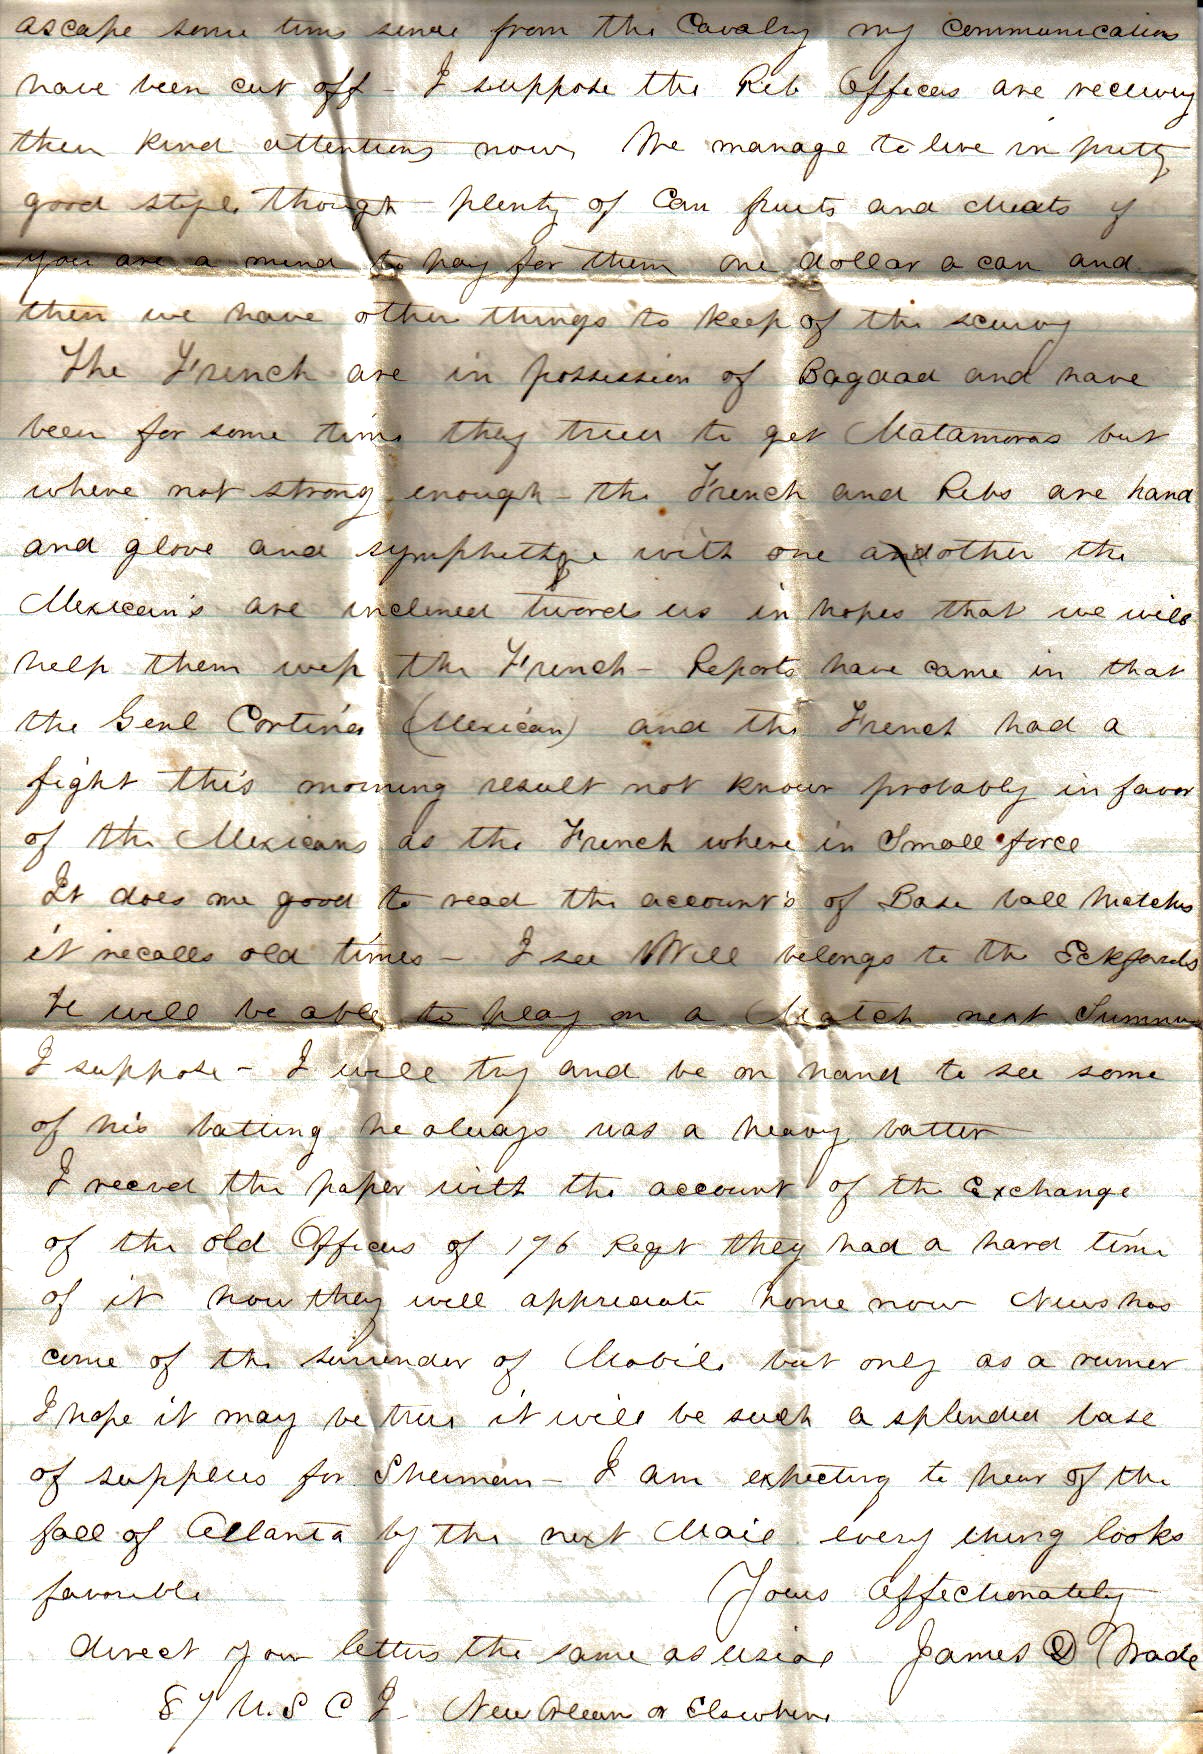 ascape some time since from the Cavalry my communications
have been cut off - I suppose the Reb Officers are receiving
their kind attentions now, We manage to live in pretty
good style though - plenty of Can fruits and Meats if
you are a mind to pay for them one dollar a can and
then we have other things to keep of the scurvy
The French are in possession of Bagdad and have
been for some time they tried to get Matamoras but
where not strong enough - the French and Rebs are hand
and glove and symphethize with one andother the
Mexican's are inclined twords us in hopes that we will
help them wip the French - Reports have came in that
the Genl Cortinas (Mexican) and the French had a
fight this morning result not known probably in favor
of the Mexicans as the French where in Small force
It does me good to read the account's of Base ball Matches
it recalls old times - I see Will belongs to the Eckfords
He will be able to play on a Match next Summer
I suppose - I will try and be on hand to see some
of his batting he always was a heavy batter
I recvd the paper with the account of the Exchange
of the old Officers of 176 Regt they had a hard time
of it how they will appreciate home now News has
come of the surrender of Mobile but only as a rumer
I hope it may be true it will be such a splendid base
of supplies for Sherman - I am expecting to hear of the
fall of Atlanta by the next Mail every thing looks
favorible Yours Affectionately
direct your letters the same as usial James D Wade
87 U.S C I - New Orleans or Elsewhere